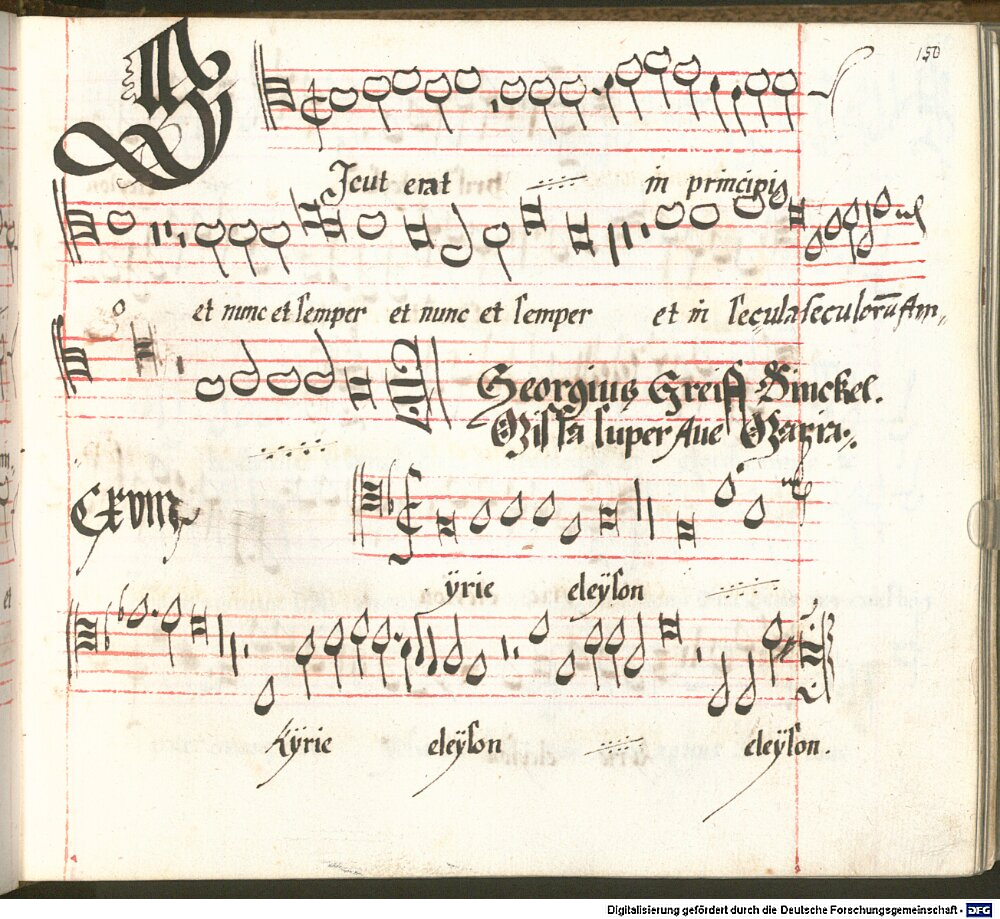 150
Sicut erat in principio
et nunc et semper et nunc et semper et in secula seculorũ Am,,
Georgius Greiff Binckel.
Missa super Ave Maria.
CXVIII
ÿrie eleÿson
Kÿrie eleÿson eleÿson.
Digitalisierung gefördert durch die Deutsche Forschungsgemeinschaft - DFG